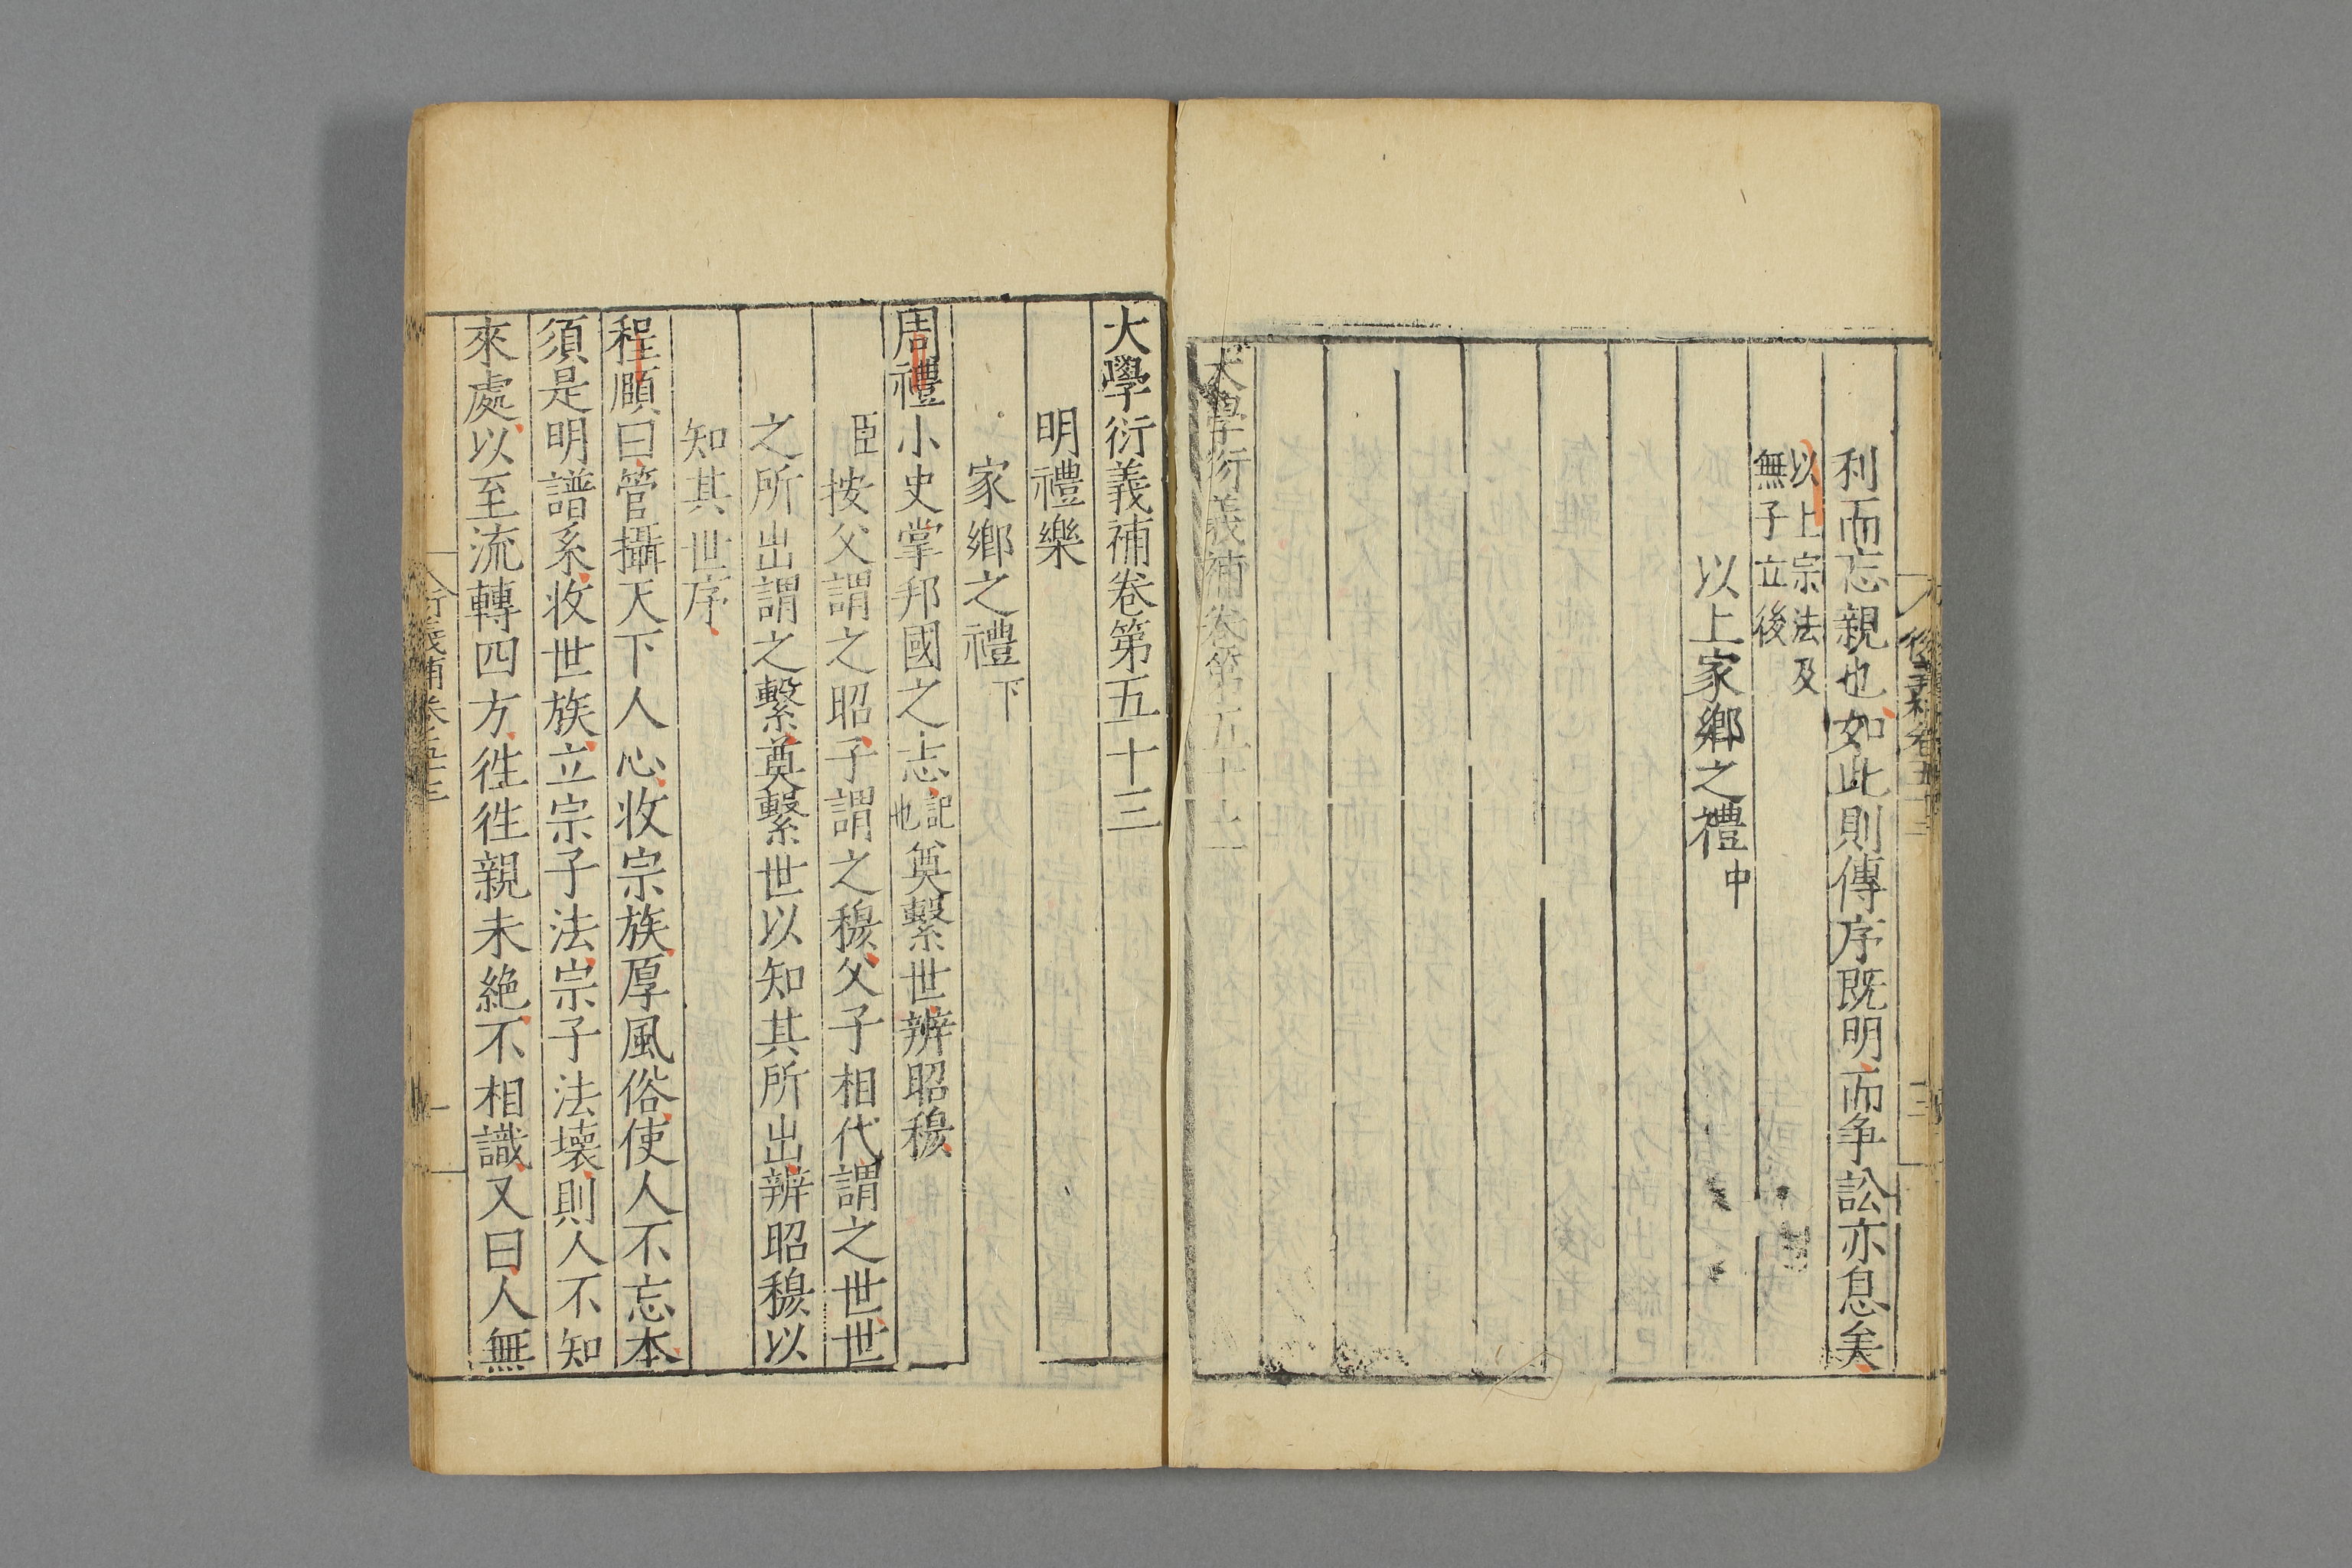 利而忘親也如此則傳序既明而争訟亦息矣
以上宗法及
無子立後
以上家鄉之禮中
大學衍義補卷第五十二
大學衍義補卷第五十三
明禮樂
家鄉之禮下
周禮小史掌邦國之志記也奠繫世辨昭穆
臣按父謂之昭子謂之穆父子相代謂之世世
之所出謂之繫奠繫世以知其所出辨昭穆以
知其世序
程頤曰管攝天下人心收宗族厚風俗使人不忘本
須是明譜系收世族立宗子法宗子法壞則人不知
來處以至流轉四方徃徃親未絶不相識又曰人無
衍義補卷五十三